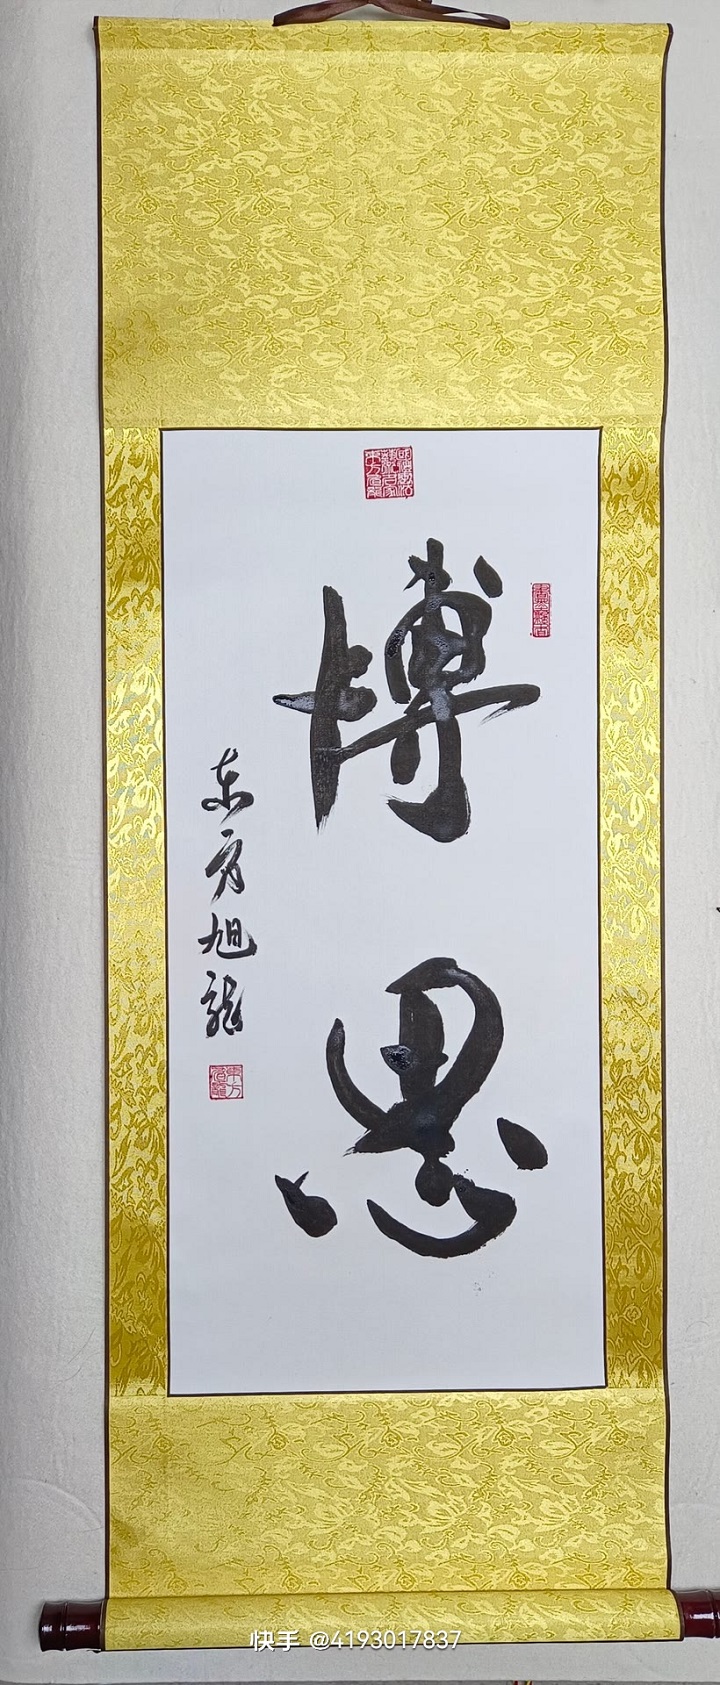 博思
东方旭龍
快手 @4193017837